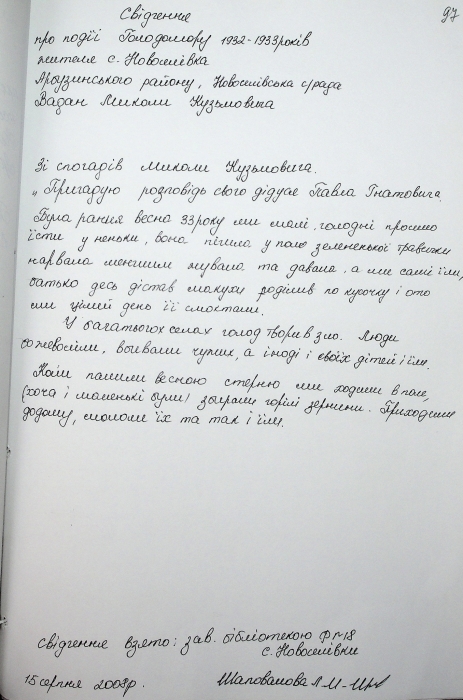 97
Свідчення
про події Голодомору 1932-1933 років
жителя с. Новоселівка
Арцизинського району, Новоселівська с/рада
Вадан Миколи Кузьмовича
Зі спогадів Миколи Кузьмовича.
„Пригадую розповідь свого дідуся Павла Гнатовича.
Була рання весна 33 року ми малі, голодні просимо
їсти у неньки, вона пішла у поле зелененької травички
нарвала меншим жувала та давала, а ми самі їли,
батько десь дістав макухи розділив по кусочку і ото
ми цілий день її смоктали.
У багатьох селах голод творив зло. Люди
божеволіли, вбивали чужих, а іноді і своїх дітей і їли.
Коли палили весною стерню ми ходили в поле,
(хоча і маленькі були) збирали горілі зернини. Приходили
додому, мололи їх та так і їли.
Свідчення взято: зав. бібліотекою ф №18
с. Новоселівки
15 серпня 2008р. Шаповалова Л.М.